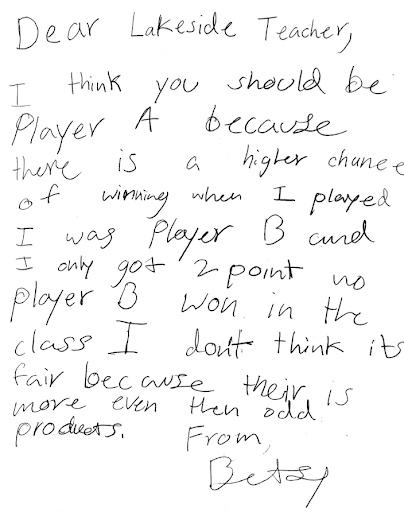 Dear Lakeside Teacher,
I think you should be
Player A because
there is a higher chance
of winning when I played
I was Player B and
I only got 2 point no
player B won in the
class I don't think its
fair because their is
more even then odd
products. From,
Betsy